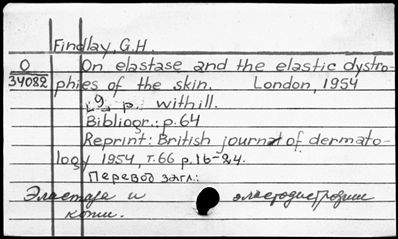 Findlay, G.H.
O On elastase and the elastic dystro-
34082 phies of the skin. London, 1954
[9] p. with ill.
Bibliogr.: p. 64
Reprint: British journ. of dermato-
logy 1954, т.66 p. 16-24.
Перевод загл.:
Эластаза и эластодистрофии
кожи.